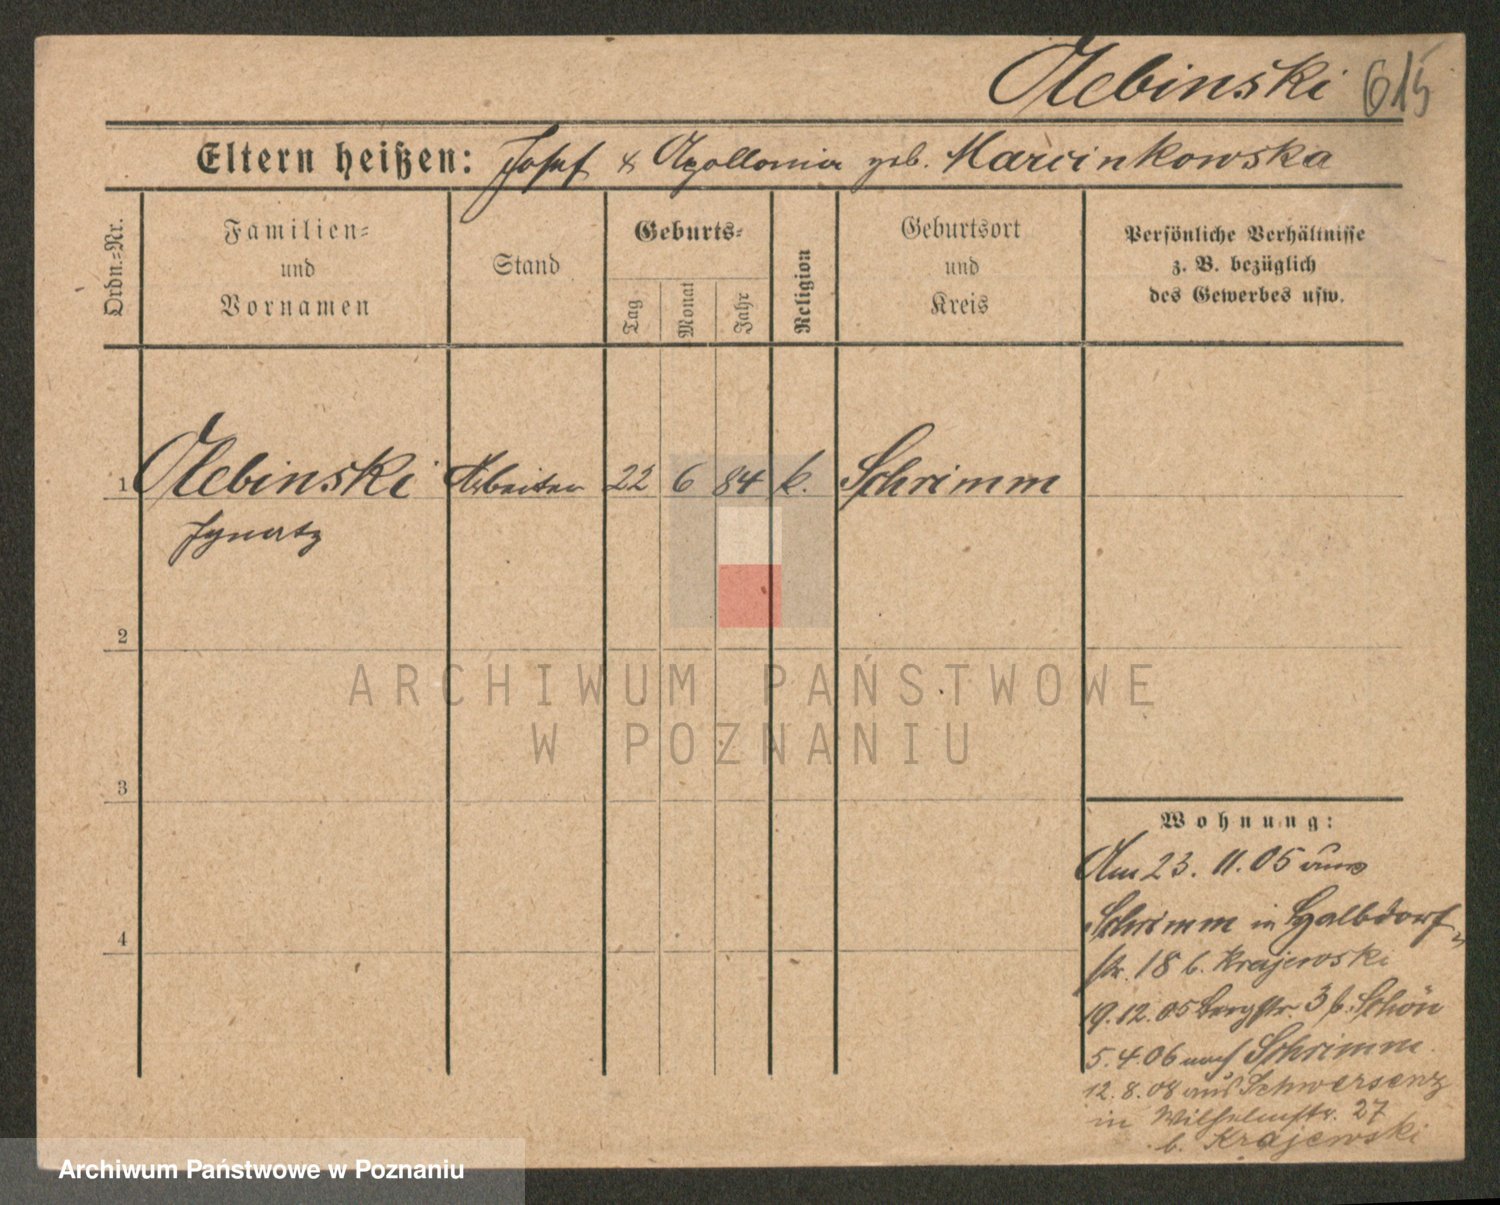 Olebinski 615
Eltern heißen: Josef & Apollonia geb. Marcinkowska
Ordn.-Nr.
Familien-
und
Vornamen
Stand
Geburts-
Tag
Monat
Jahr
Religion
Geburtsort
und
Kreis
Persönliche Verhältnisse
z. B. bezüglich
des Gewerbes usw.
1 Olebinski Arbeiter 22 6 84 k. Schrimm
Ignatz
2
ARCHIWUM PAŃSTWOWE
W POZNANIU
3
Wohnung:
Am 23. 11. 05 aus
Schrimm in Halbdorf-
str. 18 b. Krajewski
19. 12. 05 Bergstr. 3 b. Schön
5. 4. 06 nach Schrimm.
12. 8. 08 aus Schwersenz
in Wilhelmstr. 27
b. Krajewski
4
Archiwum Państwowe w Poznaniu